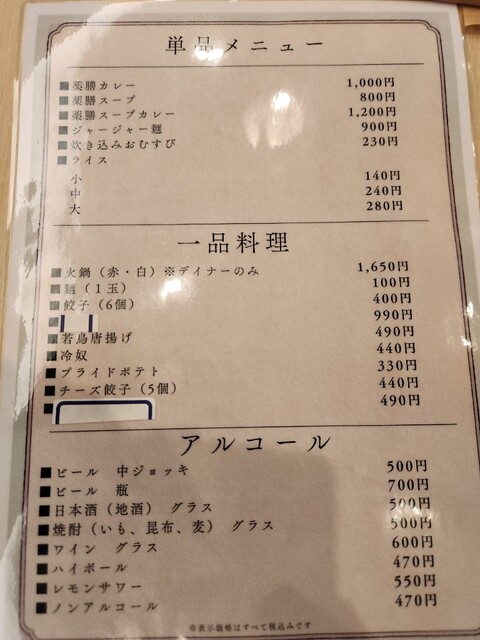 単品メニュー
■薬膳カレー 1,000円
■薬膳スープ 800円
■薬膳スープカレー 1,200円
■ジャージャー麺 900円
■炊き込みおむすび 230円
■ライス
小 140円
中 240円
大 280円
一品料理
■火鍋（赤・白）※デイナーのみ 1,650円
■麺（1玉） 100円
■餃子（6個） 400円
■ 990円
■若鳥唐揚げ 490円
■冷奴 440円
■フライドポテト 330円
■チーズ餃子（5個） 440円
■ 490円
アルコール
■ビール 中ジョッキ 500円
■ビール 瓶 700円
■日本酒（地酒） グラス 500円
■焼酎（いも、昆布、麦） グラス 500円
■ワイン グラス 600円
■ハイボール 470円
■レモンサワー 550円
■ノンアルコール 470円
※表示価格はすべて税込みです